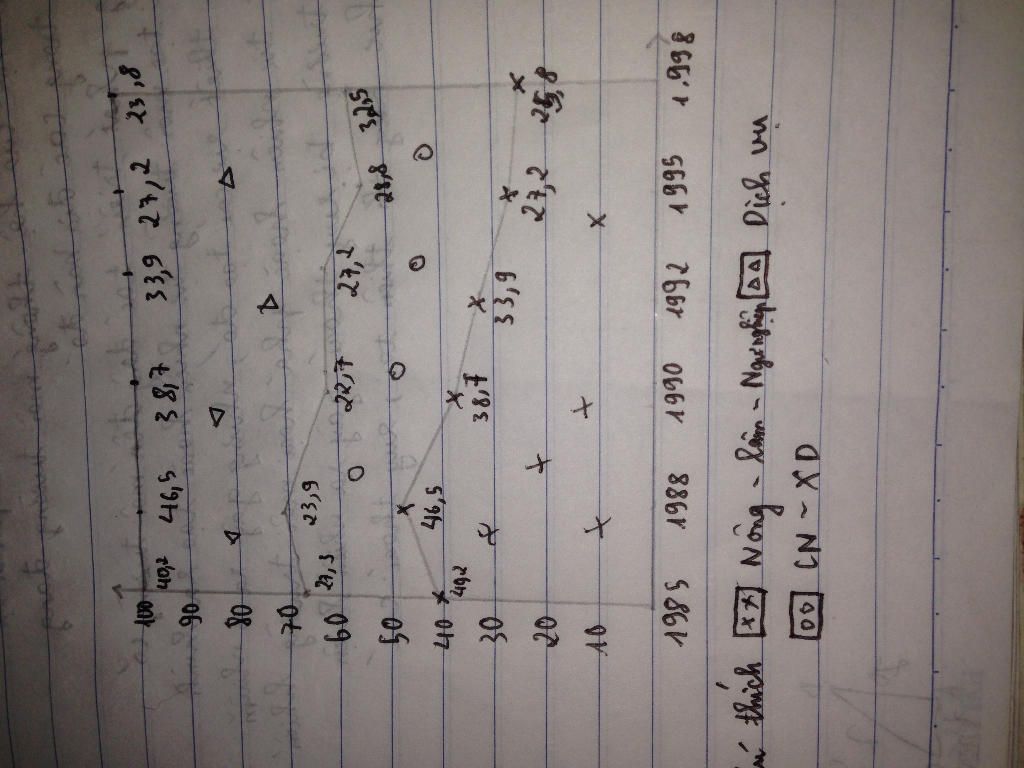 100
40,2 46,5 38,7 33,9 27,2 23,8
90
80
70
23,9
60 22,7 27,2 28,8 32,5
50
40 40,2 46,5 38,7
30 33,9
20 27,2
10
1985 1988 1990 1992 1995 1.998
thích Nông - lâm - Ngư nghiệp Dịch vụ
CN - XD